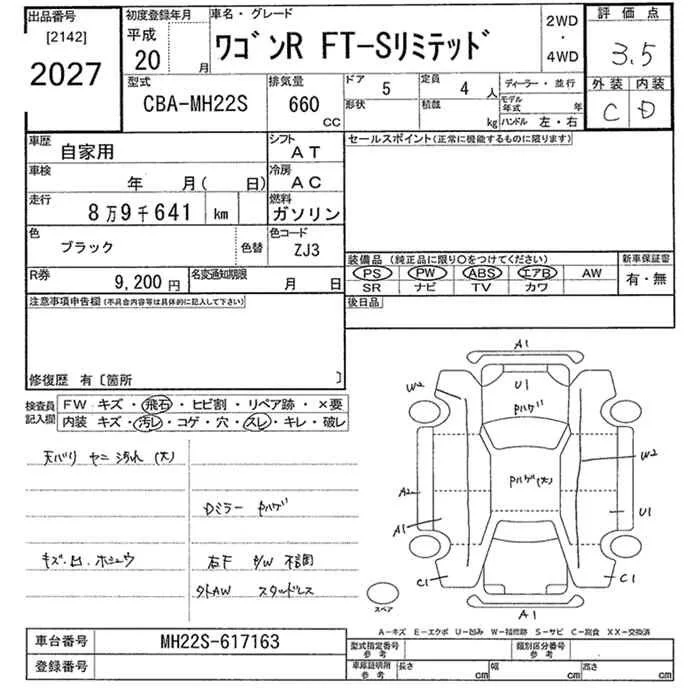 出品番号
[2142]
2027
初度登録年月
平成
20 月
車名・グレード
ワゴンR FT-Sリミテッド
2WD
・
4WD
評価点
3.5
外装 内装
C D
型式
CBA-MH22S
排気量
660 CC
ドア 5
形状
定員 4 人
積載 kg
ディーラー・並行
モデル年式 年
ハンドル 左・右
車歴 自家用
シフト AT
車検 年 月( 日)
冷房 AC
走行 8万9千641 km
燃料 ガソリン
色 ブラック 色替
色コード ZJ3
R券 9,200円
名変通知期限 月 日
セールスポイント(正常に機能するものに限ります)
装備品 (純正品に限り○をつけてください)
PS PW ABS エアB AW
SR ナビ TV カワ
新車保証書
有・無
後日品
注意事項申告欄(不具合内容等は具体的に記入して下さい)
修復歴 有〔箇所 〕
検査員記入欄
FW キズ・飛石・ヒビ割・リペア跡・×要
内装 キズ・汚レ・コゲ・穴・スレ・キレ・破レ
天バリ ヤニ 汚れ (大)
Dミラー Pハゲ
キズ.凹.ホシュウ
右F P/W 不調
外AW スタッドレス
A1
W2
U1
Pハゲ
W2
Pハゲ(大)
A2
A1
U1
C1
C1
A1
スペア
A-キズ E-エクボ U-凹み W-補修跡 S-サビ C-腐食 XX-交換済
車台番号 MH22S-617163
登録番号
型式指定番号 参考
類別区分番号 参考
車庫証明所 参考
長さ cm
幅 cm
高さ cm